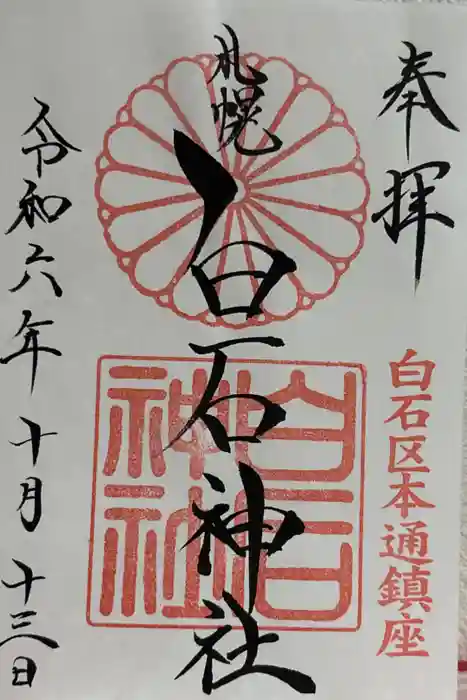 奉拝
白石区本通鎮座
札幌
白石神社
白石
神社
令和六年十月十三日